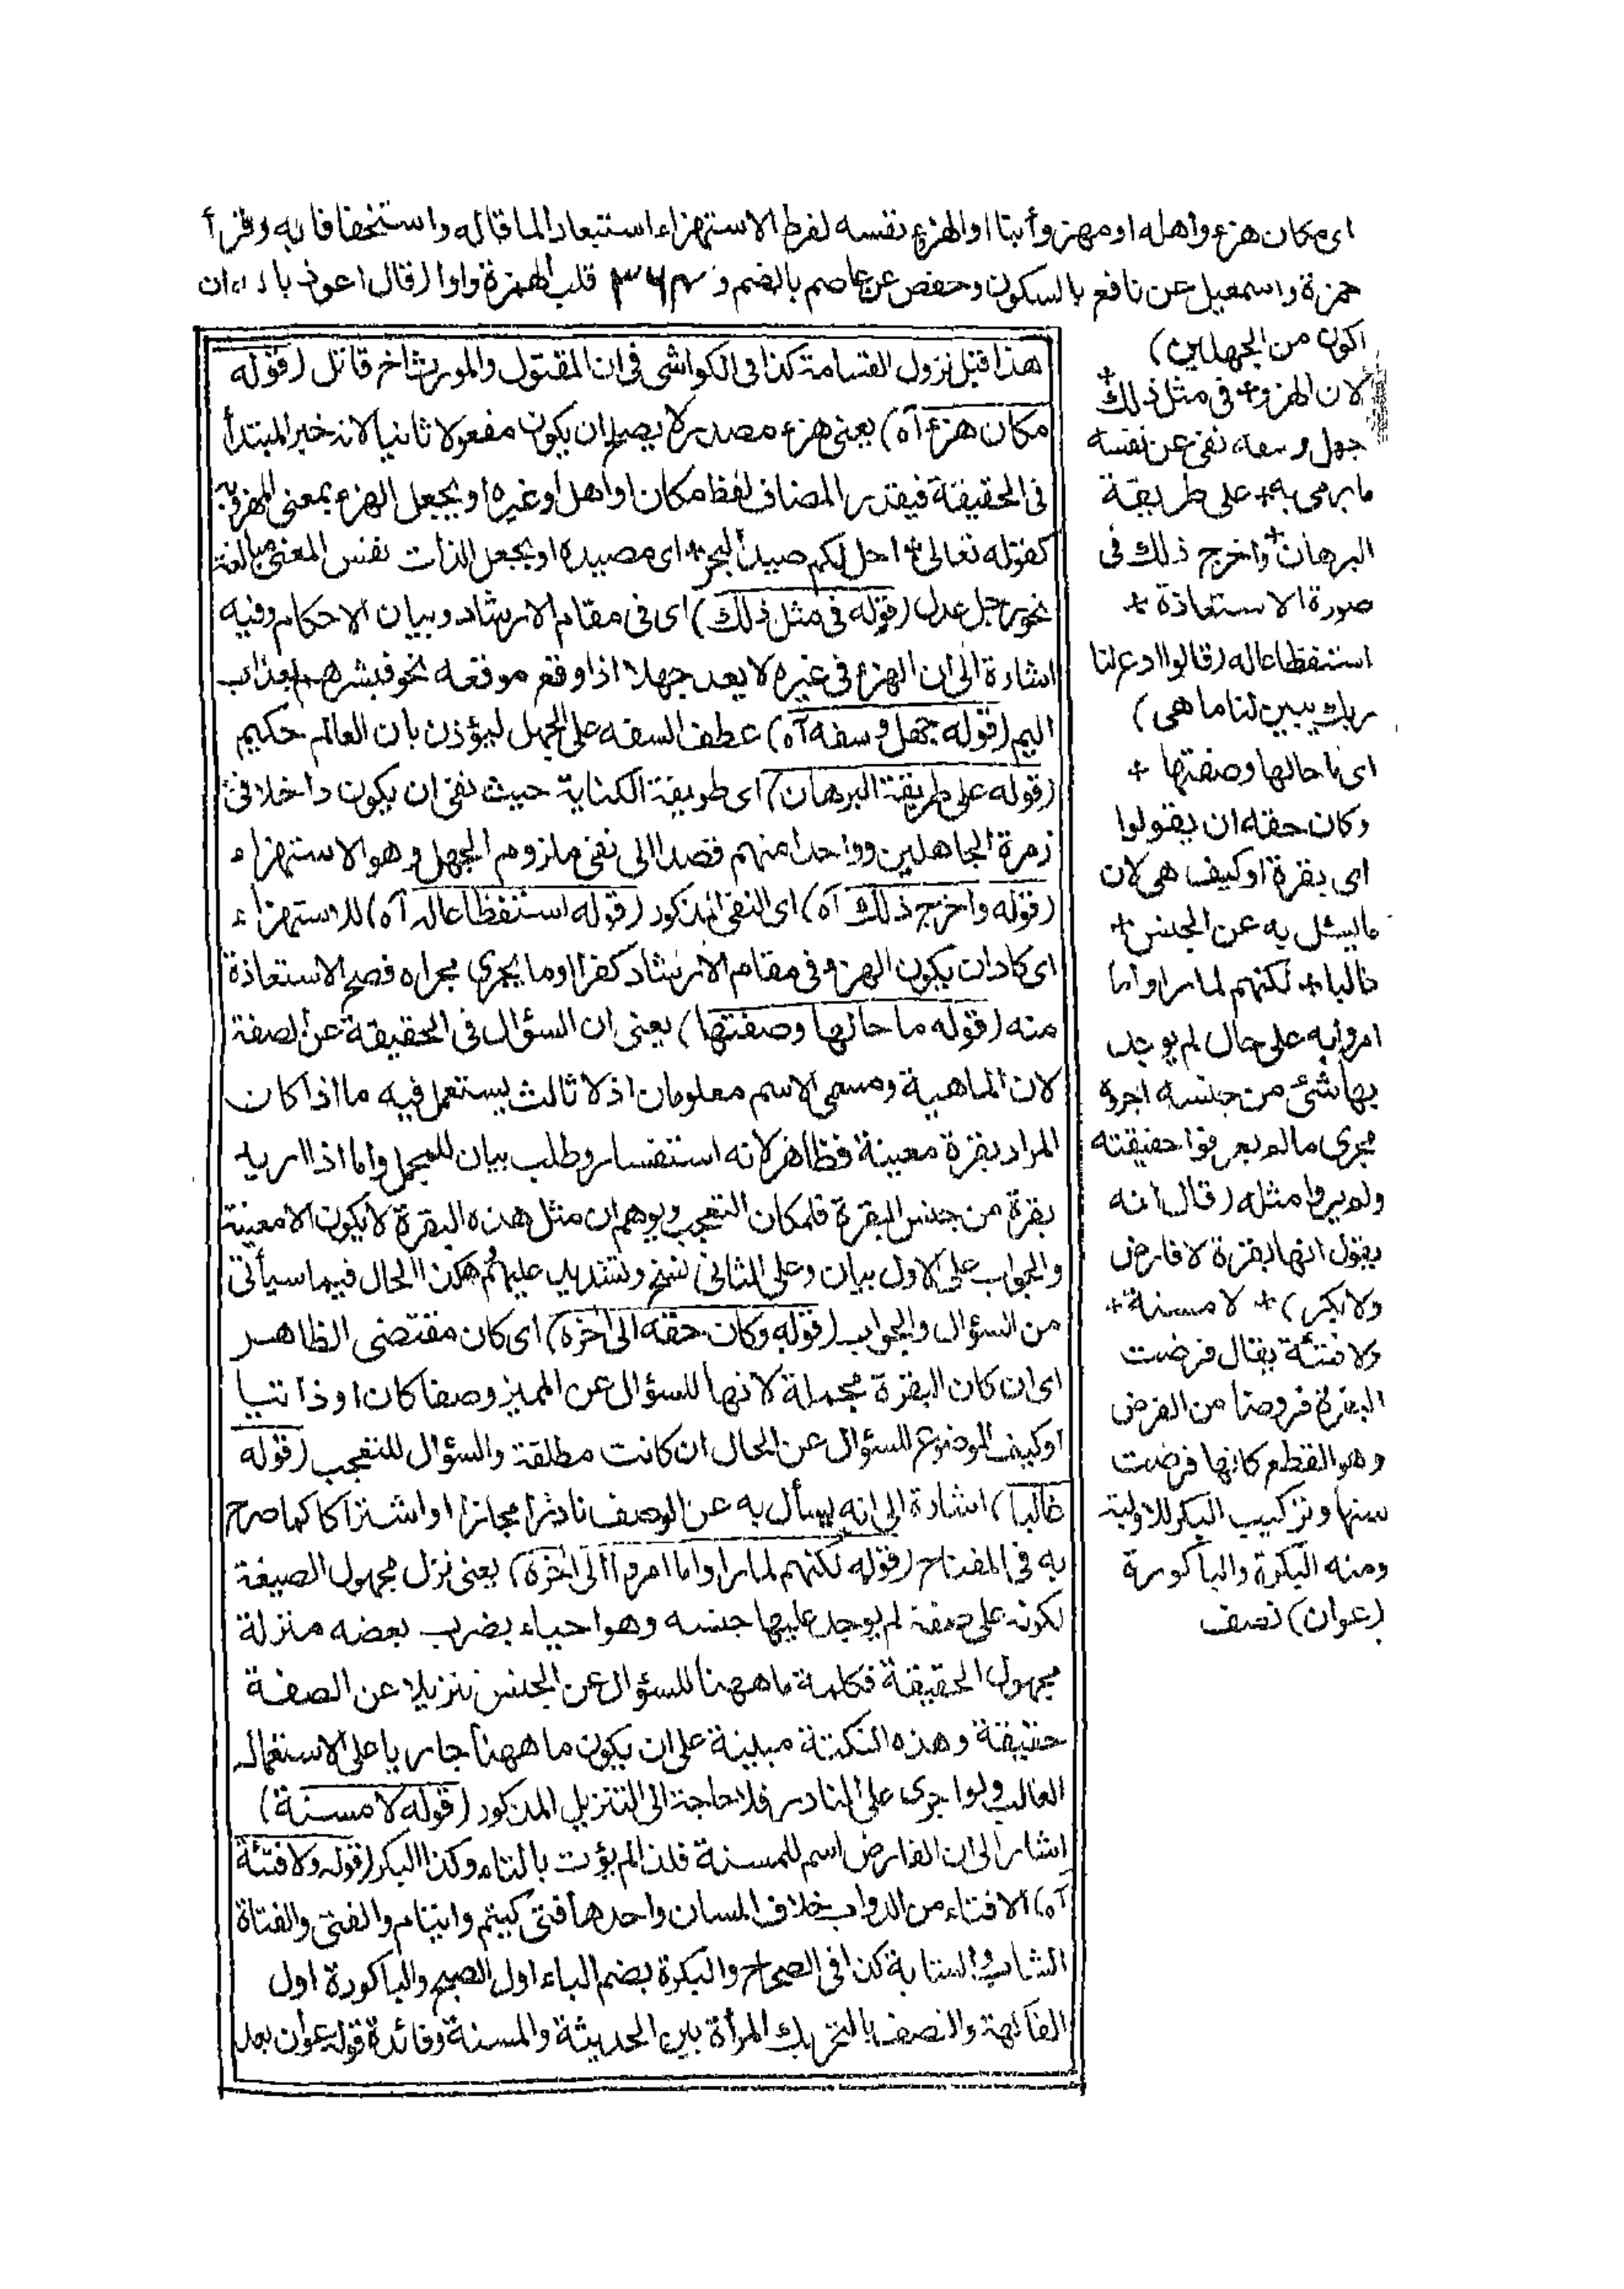 اى مكان هزء واهله او مهزوأبنا اوالهزء نفسه لفرط الاستهزاء استبعادا لما قاله واستخفافا به وقرأ
حمزة واسمعيل عن نافع بالسكون وحفص عن عاصم بالضم و ٣٦٣ قلب الهمزة واوا (قال اعوذ بالله ان
اكون من الجهلين)
لان الهزو + فى مثل ذلك +
جهل وسفه نفى عن نفسه
ما رمى به + على طريقة
البرهان + واخرج ذلك فى
صورة الاستعاذة +
استفظاعا له (قالوا ادع لنا
ربك يبين لنا ما هى)
اى ما حالها وصفتها +
وكان حقه ان يقولوا
اى بقرة او كيف هى لان
ما يسئل به عن الجنس +
غالبا + لكنهم لما راوا ما
امروا به على حال لم يوجد
بها شئ من جنسه اجروه
مجرى ما لم يعرفوا حقيقته
ولم يروا مثله (قال انه
يقول انها بقرة لا فارض
ولا بكر) + لا مسنة +
ولا فتئة يقال فرضت
البقرة فروضا من الفرض
وهو القطع كانها فرضت
سنها وتركيب البكر للاولية
ومنه البكرة والباكورة
(عوان) نصف
هذا قبل نزول القسامة كذا فى الكواشى فى ان المقتول والمورث اخر قاتل (قوله
مكان هزء آه) يعنى هزء مصدر لا يصلح ان يكون مفعولا ثانيا لانه خبر المبتدأ
فى الحقيقة فيقدر المضاف لفظ مكان او اهل او غيره او يجعل الهزء بمعنى المهزو به
كقوله تعالى + احل لكم صيد البحر + اى مصيده او يجعل الذات نفس المعنى مبالغة
نحو رجل عدل (قوله فى مثل ذلك) اى فى مقام الارشاد وبيان الاحكام وفيه
اشارة الى ان الهزء فى غيره لا يعد جهلا اذا وقع موقعه نحو فبشرهم بعذاب
اليم (قوله جهل وسفه آه) عطف السفه على الجهل ليؤذن بان العالم حكيم
(قوله على طريقة البرهان) اى طريقة الكناية حيث نفى ان يكون داخلا فى
زمرة الجاهلين وواحدا منهم قصدا الى نفى ملزوم الجهل وهو الاستهزاء
(قوله واخرج ذلك آه) اى النفى المذكور (قوله استفظاعا له آه) للاستهزاء
اى كاد ان يكون الهزو فى مقام الارشاد كفرا او ما يجرى مجراه فصح الاستعاذة
منه (قوله ما حالها وصفتها) يعنى ان السؤال فى الحقيقة عن الصفة
لان الماهية ومسمى الاسم معلومان اذ لا ثالث يستعمل فيه ما اذا كان
المراد بقرة معينة فظاهر لانه استفسار وطلب بيان للمجمل واما اذا اريد
بقرة من جنس البقرة فلمكان التعجب وتوهم ان مثل هذه البقرة لا يكون الا معينة
والجواب على الاول بيان وعلى الثانى نسخ وتشديد عليهم هكذا الحال فيما سيأتى
من السؤال والجواب (قوله وكان حقه الى اخره) اى كان مقتضى الظاهر
اى ان كان البقرة مجملة لانها للسؤال عن المميز وصفا كان او ذاتيا
او كيف الموضوع للسؤال عن الحال ان كانت مطلقة والسؤال للتعجب (قوله
غالبا) اشارة الى انه يسأل به عن الوصف نادرا مجازا او اشتراكا كما صرح
به فى المفتاح (قوله لكنهم لما راوا ما امروا الى اخره) يعنى نزل مجهول الصيغة
لكونه على صفة لم يوجد عليها جنسه وهو احياء بضرب بعضه منزلة
مجهول الحقيقة فكلمة ما ههنا للسؤال عن الجنس تنزيلا عن الصفة
حقيقة وهذه النكتة مبنية على ان يكون ما ههنا جاريا على الاستعمال
الغالب ولو اجرى على النادر فلا حاجة الى التنزيل المذكور (قوله لا مسنة)
اشار الى ان الفارض اسم للمسنة فلذا لم يؤت بالتاء وكذا البكر (قوله ولا فتئة
آه) الافتاء من الدواب خلاف المسان واحدها فتى كيتم وايتام والفتى والفتاة
الشاب والشابة كذا فى الصحاح والبكرة بضم الباء اول الصبح والباكورة اول
الفاكهة والنصف بالتحريك المرأة بين الحديثة والمسنة وفائدة قوله عوان بعد